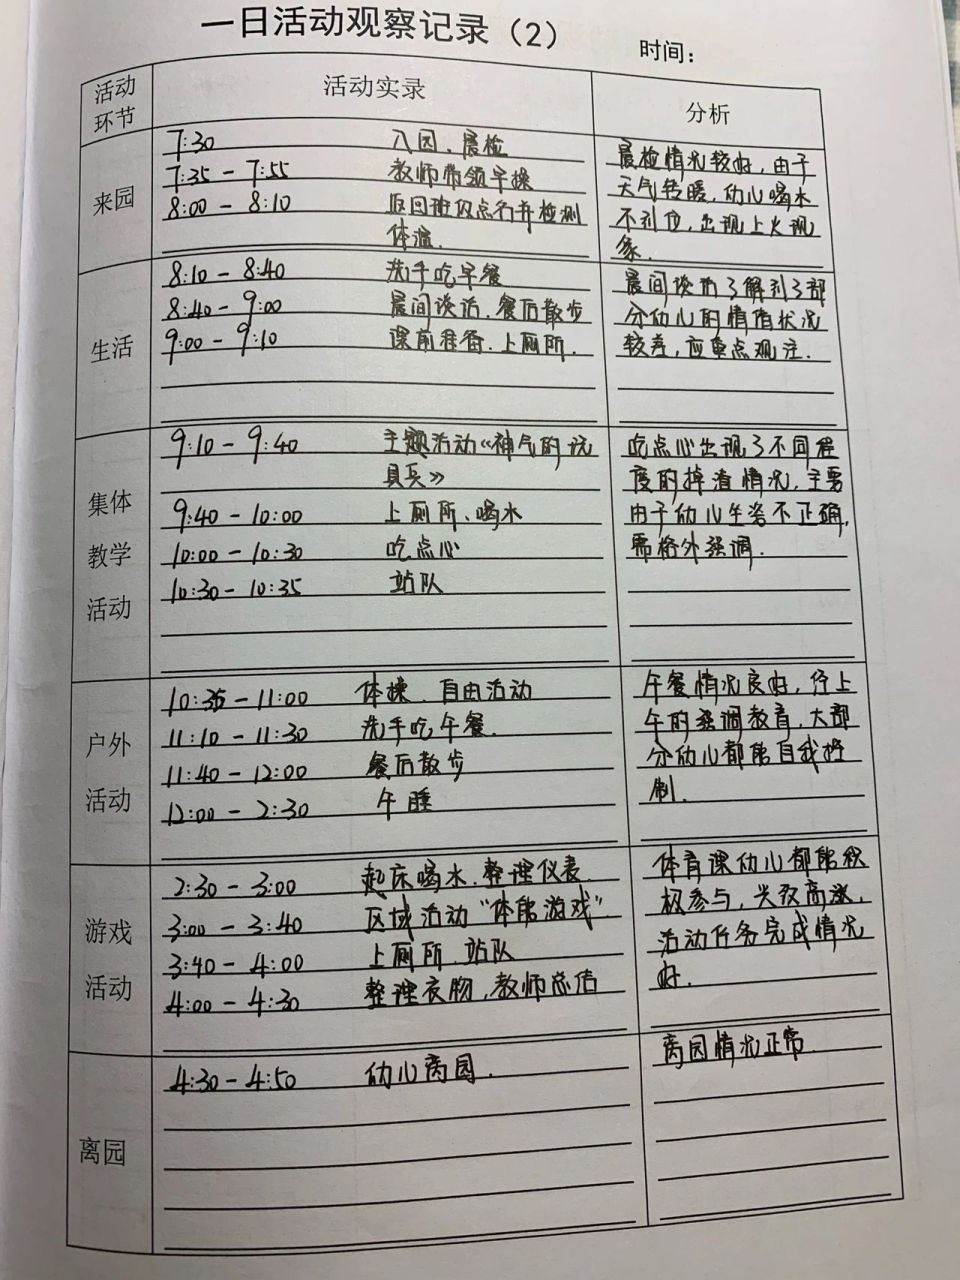 一日活动观察记录（2）
时间：
活动环节
活动实录
分析
来园
7:30 入园、晨检
7:35 - 7:55 教师带领早操
8:00 - 8:10 返回班级点名并检测
体温.
晨检情况较好，由于
天气转暖，幼儿喝水
不到位，出现上火现
象.
生活
8:10 - 8:40 洗手吃早餐
8:40 - 9:00 晨间谈话、餐后散步
9:00 - 9:10 课前准备、上厕所.
晨间谈话了解到了部
分幼儿的情绪状况
较差，应重点观注.
集体
教学
活动
9:10 - 9:40 主题活动《神气的玩
具兵》
9:40 - 10:00 上厕所、喝水
10:00 - 10:30 吃点心
10:30 - 10:35 站队
吃点心出现了不同程
度的掉渣情况，主要
由于幼儿坐姿不正确，
需格外强调.
户外
活动
10:35 - 11:00 体操、自由活动
11:10 - 11:30 洗手吃午餐.
11:40 - 12:00 餐后散步
12:00 - 2:30 午睡
午餐情况良好，经上
午的强调教育，大部
分幼儿都能自我控
制.
游戏
活动
2:30 - 3:00 起床喝水、整理仪表
3:00 - 3:40 区域活动“体能游戏”
3:40 - 4:00 上厕所、站队
4:00 - 4:30 整理衣物，教师总结
体育课幼儿都能积
极参与，兴致高涨，
活动任务完成情况
好.
离园
4:30 - 4:50 幼儿离园.
离园情况正常